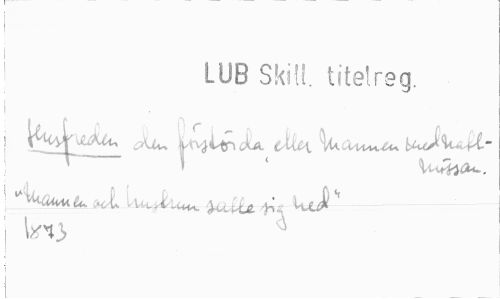 LUB Skill. titelreg.
Husfreden den förstörda, eller Mannen med natt-
mössan.
"Mannen och hustrun satte sig ned"
1873